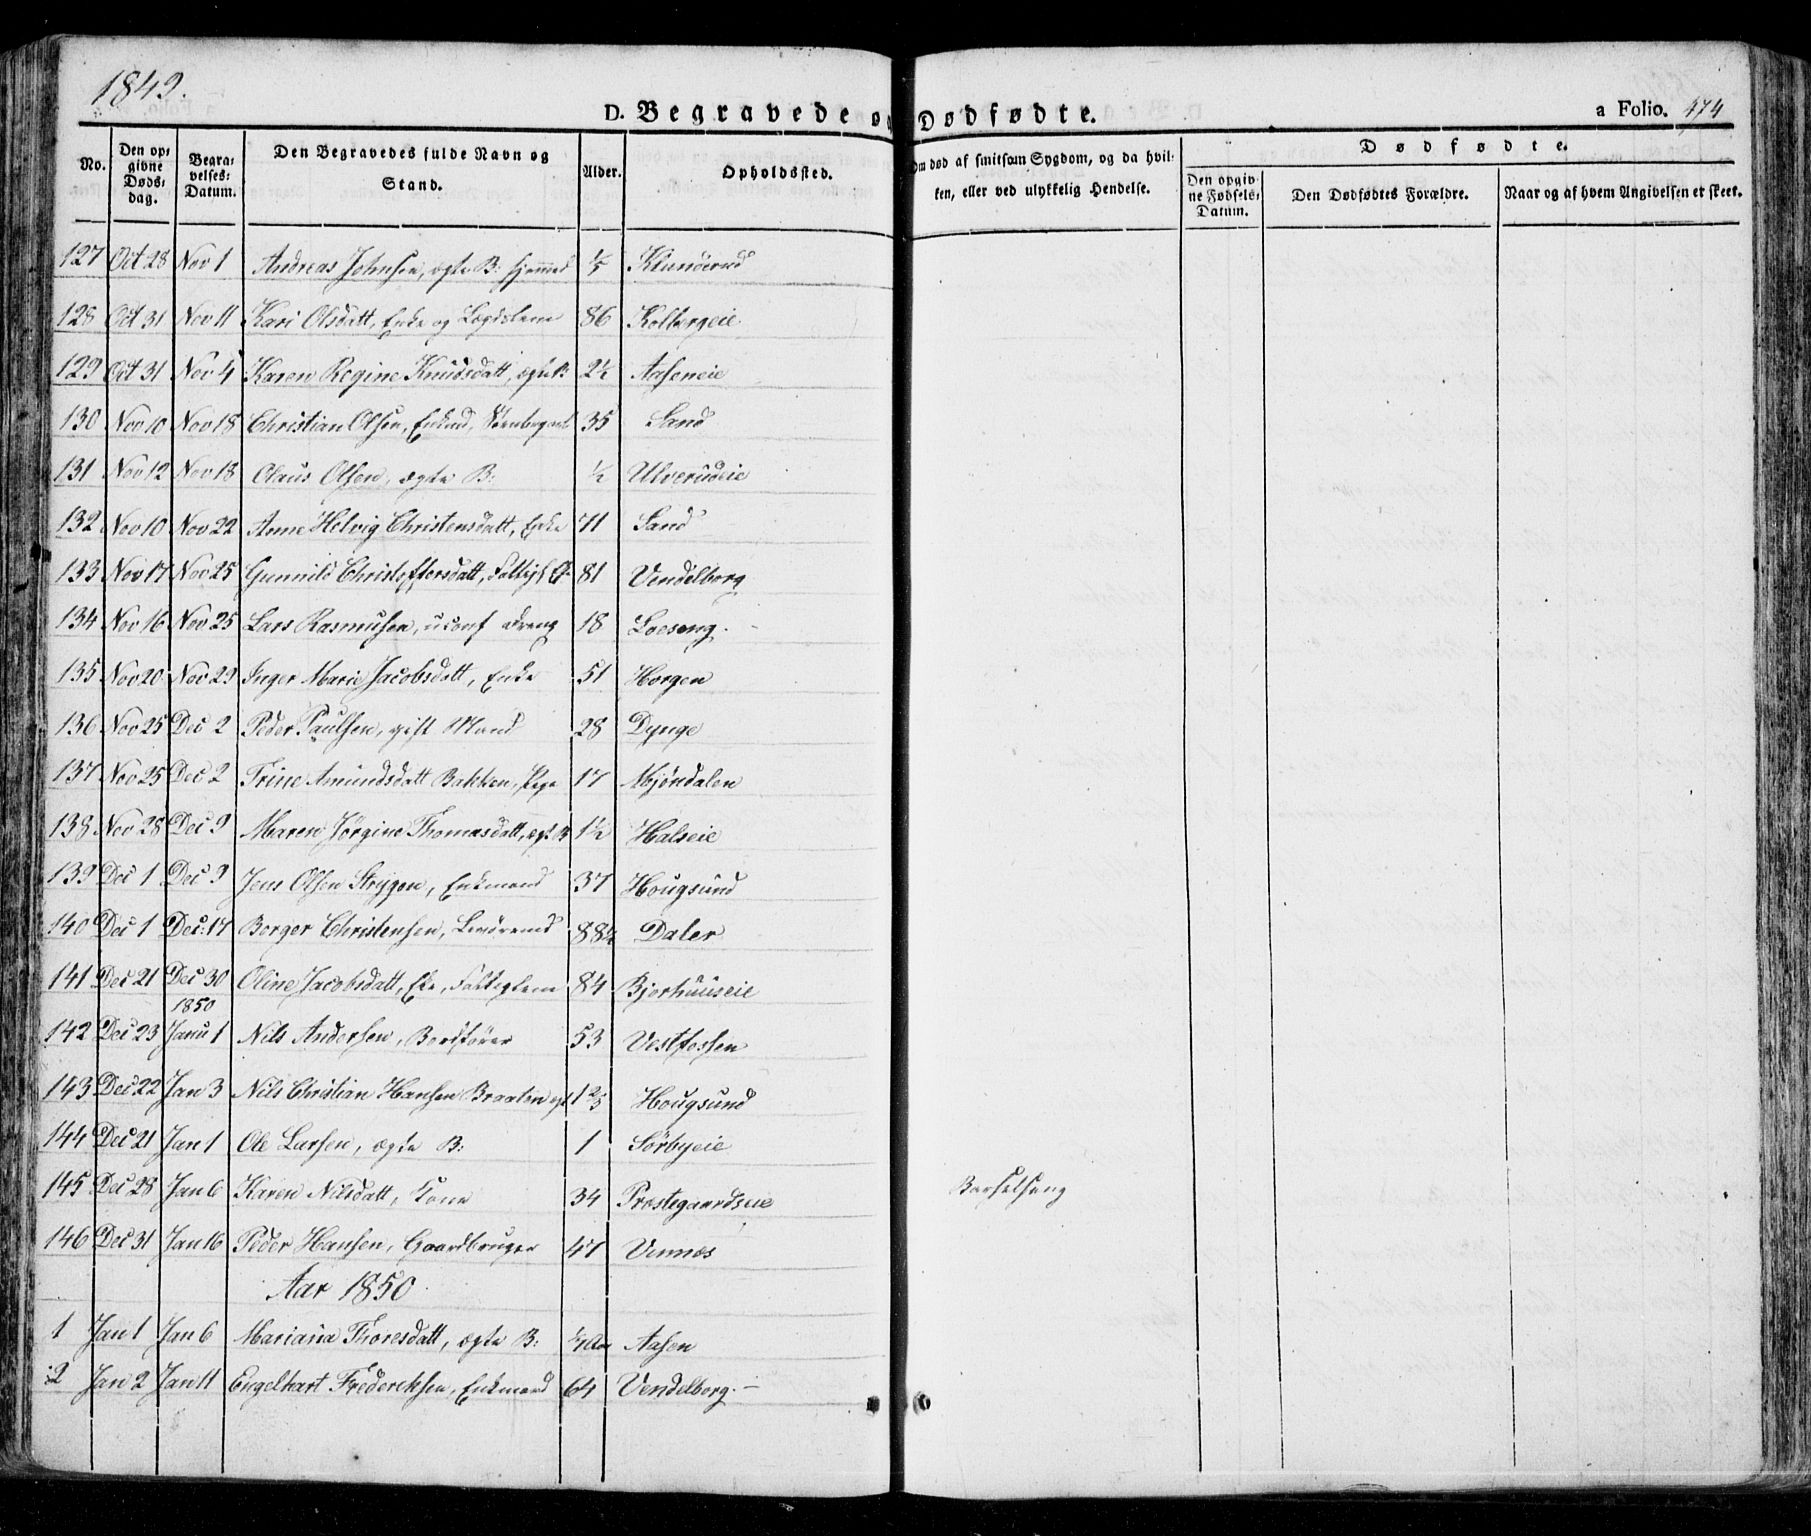 1849.
D. Begravede og Dødfødte.
a Folio. 474
No.
Den opgivne Dødsdag.
Begravelses-Datum.
Den Begravedes fulde Navn og Stand.
Alder.
Opholdssted.
Om død af smitsom Sygdom, og da hvilken, eller ved ulykkelig Hendelse.
Dødfødte.
Den opgivne Fødsels-Datum.
Den Dødfødtes Forældre.
Naar og af hvem Angivelsen er skeet.
127 Oct 28 Nov 1 Andreas Johnsen, ægte B: 1/5
128 Oct 31 Nov 11 Kari Olsdatt, Enke og Lægdslem 86 Kolbergeie
129 Oct 31 Nov 4 Karen Regine Knudsdatt, ægte B: 2½ Aaseneie
130 Nov 10 Nov 18 Christian Olsen, 35 Sand
131 Nov 12 Nov 18 Claus Olsen, ægte B: ½ Ulverudeie
132 Nov 10 Nov 22 Anne Helvig Christensdatt, Enke 71 Sand
133 Nov 17 Nov 25 Gunnild Christoffersdatt, 81 Vendelborg
134 Nov 16 Nov 25 Lars Rasmusen, uconf Dreng 18 Loeseng.
135 Nov 20 Nov 29 Inger Marie Jacobsdatt, Enke 51 Horgen
136 Nov 25 Dec 2 Peder Paulsen, gift Mand 28 Dynge
137 Nov 25 Dec 2 Trine Amundsdatt Bakken, Pige 17 Mjøndalen
138 Nov 28 Dec 9 Maren Jørgine Thomasdatt, ægt B 1½ Halseie
139 Dec 1 Dec 9 Jens Olsen Strygen, Enkemand 37 Hougsund
140 Dec 1 Dec: 17 Borger Christensen, 88½ Daler
141 Dec 21 Dec 30 Oline Jacobsdatt, Eke, Fattiglem 84 Bjorhuuseie
1850
142 Dec 23 Janu 1 Nils Andersen, Bordfører 53 Vestfossen
143 Dec 22 Jan 3 Nils Christian Hansen Braaten ægt 1 2/5 Hougsund
144 Dec 21 Jan 1 Ole Larsen, ægte B: 1 Sørbyeie
145 Dec 28 Jan 6 Karen Nilsdatt, Kone 34 Præstegaardseie Barselseng
146 Dec 31 Jan 16 Peder Hansen, Gaardbruger 47 Vennes
Aar 1850
1 Jan 1 Jan 6 Mariana Thoresdatt, ægte B: Aasen
2 Jan 2 Jan 11 Engelhart Fredereksen, Enkemand 64 Vendelborg.